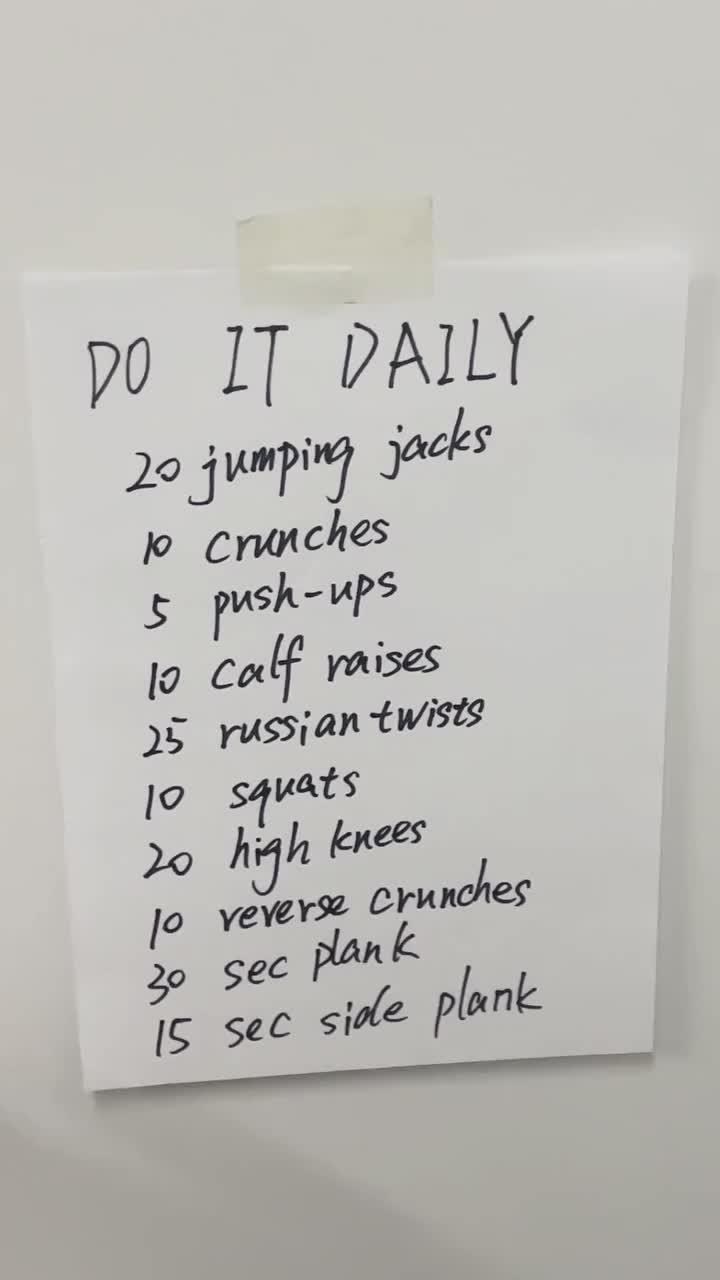 DO IT DAILY
20 jumping jacks
10 crunches
5 push-ups
10 calf raises
25 russian twists
10 squats
20 high knees
10 reverse crunches
30 sec plank
15 sec side plank